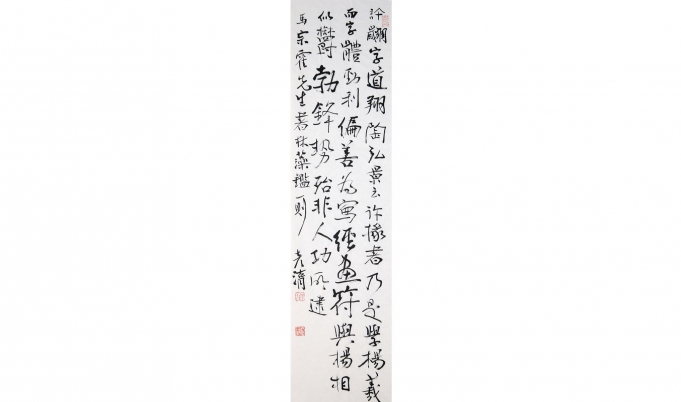 許翽字道翔陶弘景云許掾者乃是學楊羲
而字體勁利偏善為寫經畫符與楊相
似鬱勃鋒勢殆非人功所逮
馬宗霍先生書林藻鑑一則